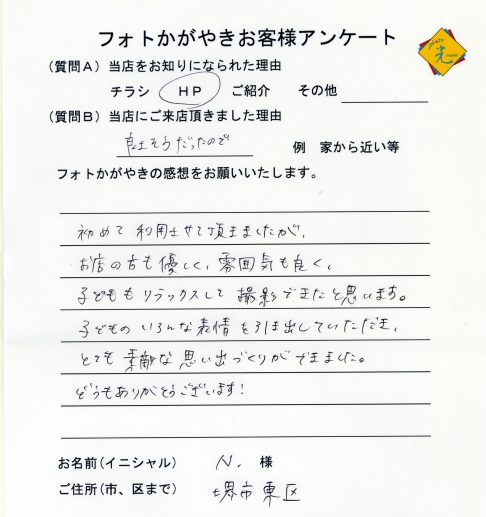 フォトかがやきお客様アンケート
光
(質問A) 当店をお知りになられた理由
チラシ HP ご紹介 その他
(質問B) 当店にご来店頂きました理由
良さそうだったので 例 家から近い等
フォトかがやきの感想をお願いいたします。
初めて利用させて頂きましたが、
お店の方も優しく、雰囲気も良く、
子どももリラックスして撮影できたと思います。
子どものいろんな表情を引き出していただき、
とても素敵な思い出づくりができました。
どうもありがとうございます!
お名前(イニシャル) N. 様
ご住所(市、区まで) 堺市東区